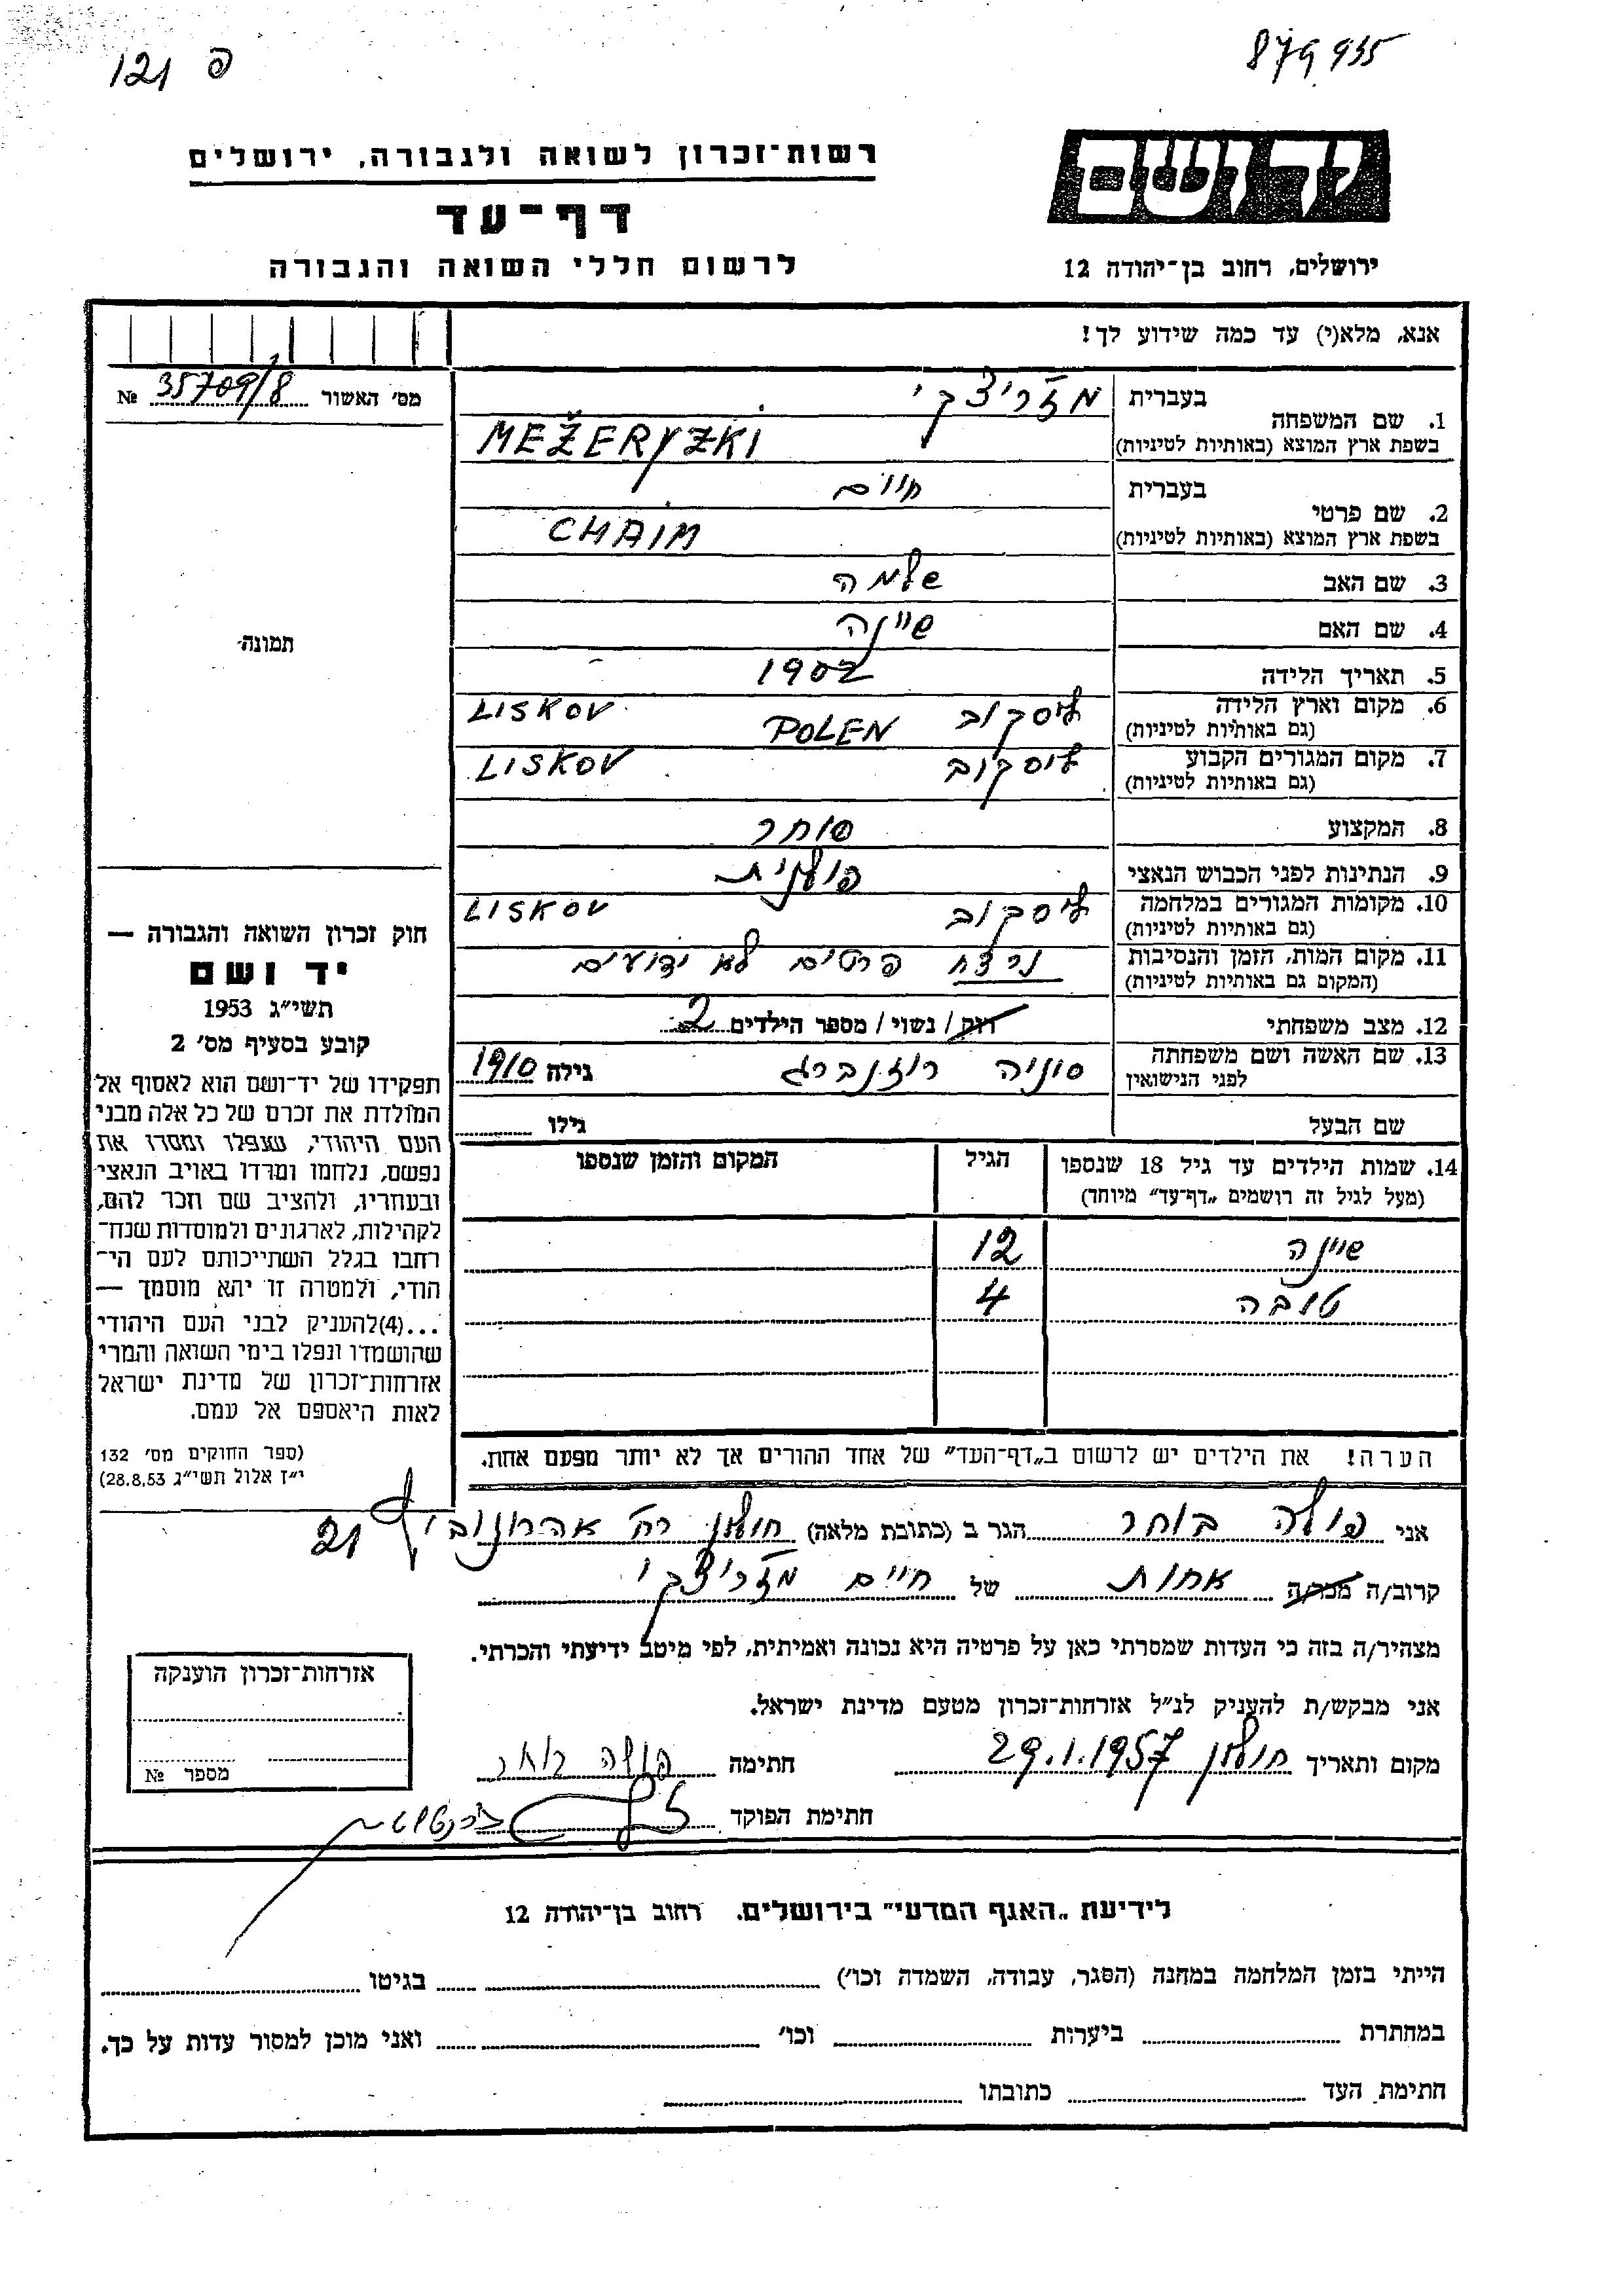 121 פ
879935
יד ושם
רשות־זכרון לשואה ולגבורה, ירושלים
דף־עד
לרשום חללי השואה והגבורה
ירושלים, רחוב בן־יהודה 12
אנא, מלא(י) עד כמה שידוע לך!
מס׳ האשור 35709/8 №
תמונה
1. שם המשפחה
בעברית מזריצקי
בשפת ארץ המוצא (באותיות לטיניות) MEŽERYZKI
2. שם פרטי
בעברית חיים
בשפת ארץ המוצא (באותיות לטיניות) CHAIM
3. שם האב שלמה
4. שם האם שיינה
5. תאריך הלידה 1902
6. מקום וארץ הלידה ליסקוב LISKOV
(גם באותיות לטיניות) POLEN
7. מקום המגורים הקבוע ליסקוב LISKOV
(גם באותיות לטיניות)
8. המקצוע סוחר
9. הנתינות לפני הכבוש הנאצי פולנית
10. מקומות המגורים במלחמה ליסקוב LISKOV
(גם באותיות לטיניות)
11. מקום המות, הזמן והנסיבות נרצח פרטים לא ידועים
(המקום גם באותיות לטיניות)
12. מצב משפחתי רווק / נשוי / מספר הילדים 2
13. שם האשה ושם משפחתה סוניה רוזנברג גילה 1910
לפני הנישואין
שם הבעל גילו
14. שמות הילדים עד גיל 18 שנספו הגיל המקום והזמן שנספו
(מעל לגיל זה רושמים „דף־עד״ מיוחד)
שיינה 12
טובה 4
הערה! את הילדים יש לרשום ב„דף־העד״ של אחד ההורים אך לא יותר מפעם אחת.
חוק זכרון השואה והגבורה —
יד ושם
תשי״ג 1953
קובע בסעיף מס׳ 2
תפקידו של יד־ושם הוא לאסוף אל
המולדת את זכרם של כל אלה מבני
העם היהודי, שנפלו ומסרו את
נפשם, נלחמו ומרדו באויב הנאצי
ובעוזריו, ולהציב שם וזכר להם,
לקהילות, לארגונים ולמוסדות שנח־
רבו בגלל השתייכותם לעם הי־
הודי, ולמטרה זו יהא מוסמך —
...(4)להעניק לבני העם היהודי
שהושמדו ונפלו בימי השואה והמרי
אזרחות־זכרון של מדינת ישראל
לאות היאספם אל עמם.
(ספר החוקים מס׳ 132
י״ז אלול תשי״ג 28.8.53)
אני פולה בוחר הגר ב (כתובת מלאה) חולון רח׳ אהרונוביץ 21
קרוב/ה מכר/ה אחות של חיים מזריצקי
מצהיר/ה בזה כי העדות שמסרתי כאן על פרטיה היא נכונה ואמיתית, לפי מיטב ידיעתי והכרתי.
אני מבקש/ת להעניק לנ״ל אזרחות־זכרון מטעם מדינת ישראל.
מקום ותאריך חולון 29.1.1957 חתימה פולה בוחר
חתימת הפוקד
אזרחות־זכרון הוענקה
מספר №
לידיעת „האגף המדעי״ בירושלים. רחוב בן־יהודה 12
הייתי בזמן המלחמה במחנה (הסגר, עבודה, השמדה וכו׳) בגיטו
במחתרת ביערות וכו׳ ואני מוכן למסור עדות על כך.
חתימת העד כתובתו